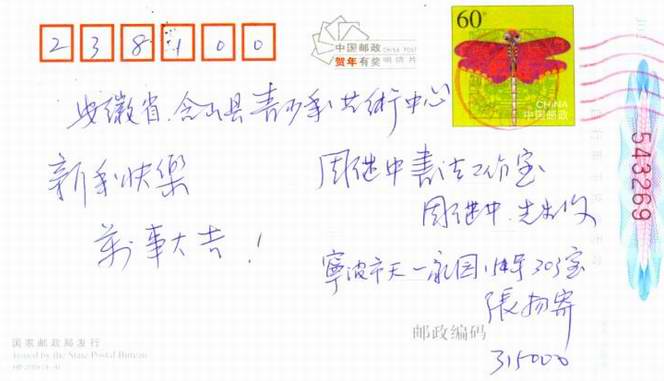 238100
60分
中国邮政 CHINA POST
贺年有奖 明信片
CHINA
中国邮政
安徽省.含山县青少年艺術中心
新年快樂
萬事大吉！
周继中書法工作室
周继中.先生收
543269
寧波市天一家园 303室
張 寄
国家邮政局发行
Issued by the State Postal Bureau
邮政编码
315000